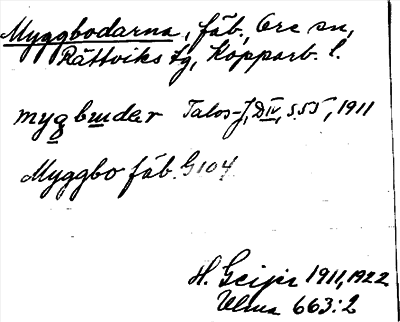 Myggbodarna, fäb., Ore sn,
Rättviks tg, Kopparb. l.
mygbudar Talos-J, D IV, s. 55, 1911
Myggbo fäb. G104
H. Geijer 1911, 1922
Ulma 663:2